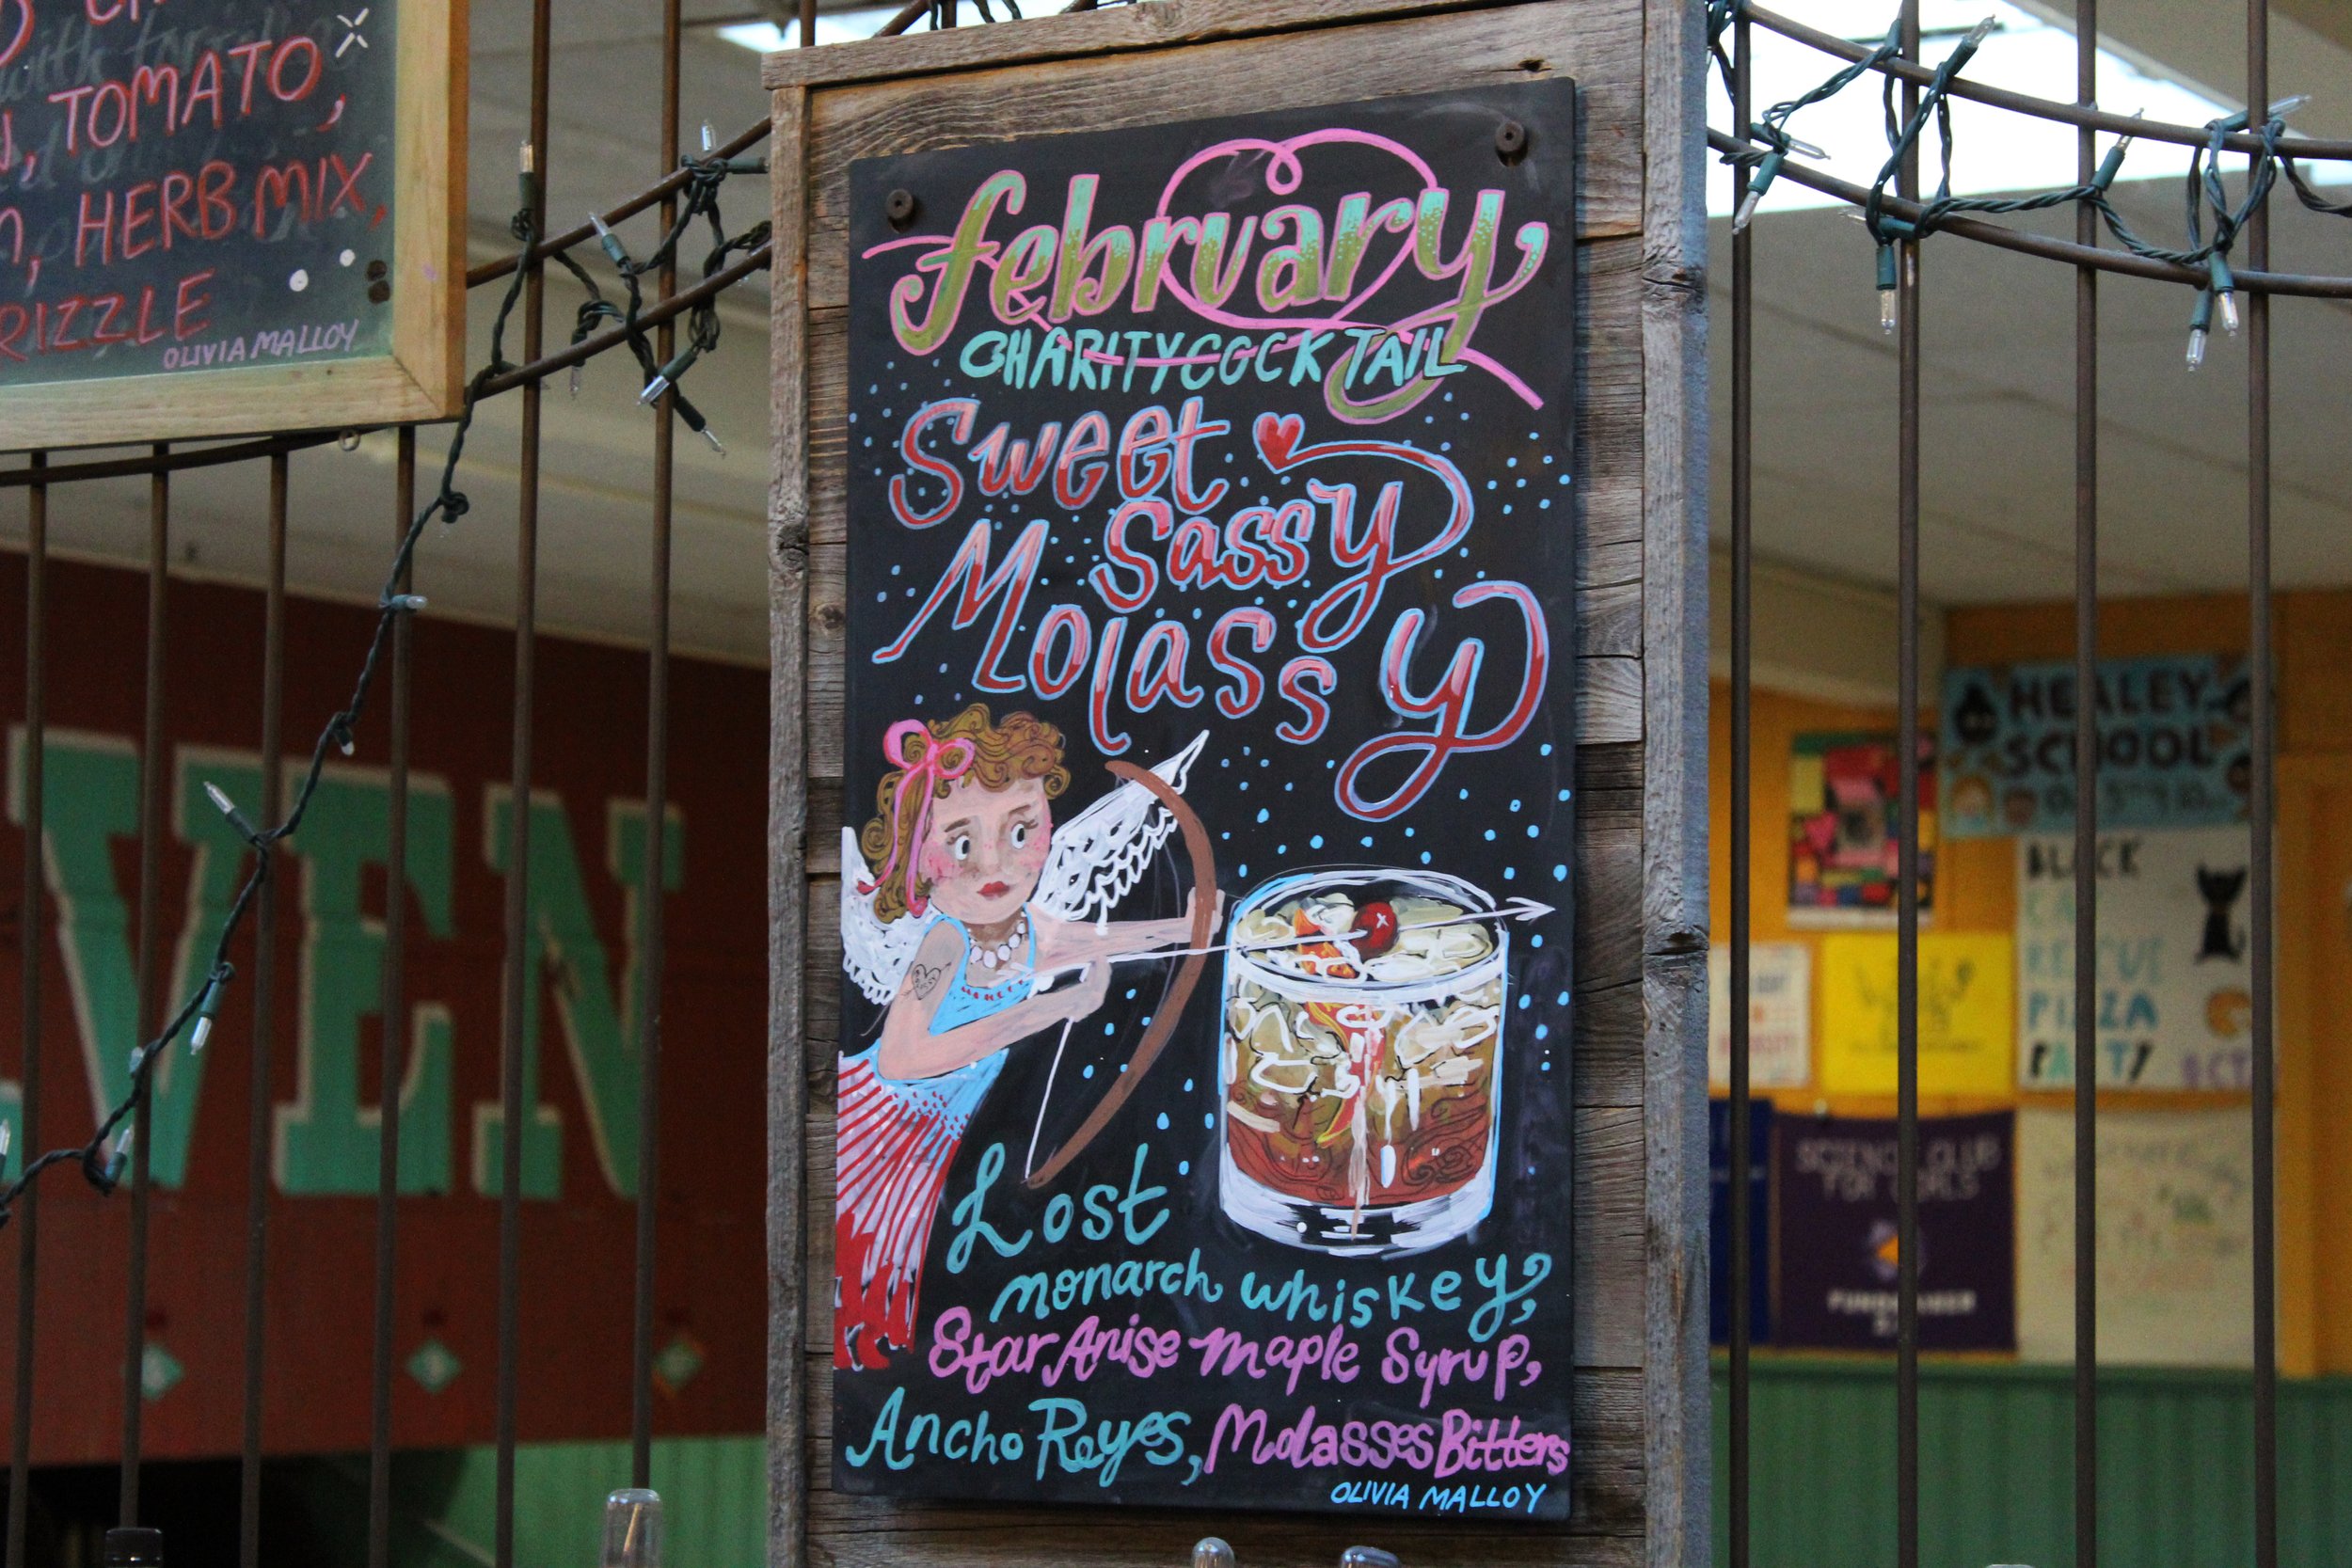 TOMATO,
HERB MIX,
RIZZLE
OLIVIA MALLOY
february
CHARITY COCKTAIL
Sweet
Sassy
Molassy
Lost
monarch whiskey,
Star Anise maple Syrup,
Ancho Reyes, Molasses Bitters
OLIVIA MALLOY
VEN
HEALEY
SCHOOL
BLACK
CAT
RESCUE
PIZZA
PARTY
SCIENCE CLUB
FOR GIRLS
FUNDRAISER